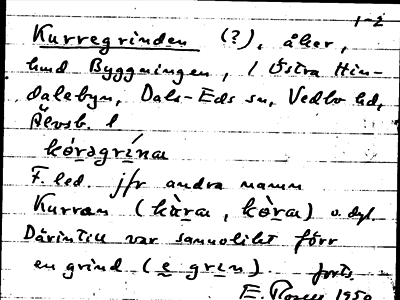 1-2
Kurregrinden (?), åker,
hmd Byggningen, i Östra Hin-
dalebyn, Dals-Eds sn, Vedbo hd,
Älvsb. l
kórəgrína
F. led. jfr andra namn
Kurran (kùra, kòra) o. dyl.
Därintill var sannolikt förr
en grind (e grın). forts.
E. Rosell 1950